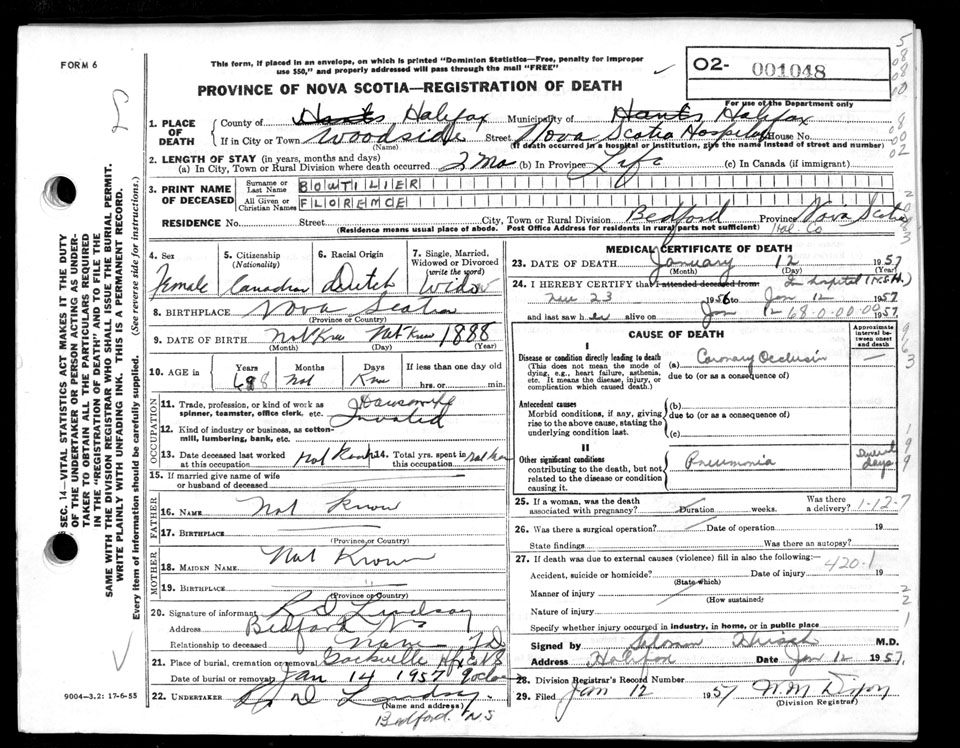 FORM 6
This form, if placed in an envelope, on which is printed "Dominion Statistics—Free, penalty for improper
use $50," and properly addressed will pass through the mail "FREE"
PROVINCE OF NOVA SCOTIA—REGISTRATION OF DEATH
O2- 001048
For use of the Department only
1. PLACE OF DEATH
County of Hants Halifax Municipality of Hants Halifax
If in City or Town Woodside Street Nova Scotia Hospital House No.
(Name) (If death occurred in a hospital or institution, give the name instead of street and number)
2. LENGTH OF STAY (in years, months and days)
(a) In City, Town or Rural Division where death occurred 2 Mo (b) In Province Life (c) In Canada (if immigrant)
3. PRINT NAME OF DECEASED
Surname or Last Name BOUTILIER
All Given or Christian Names FLOREMCE
RESIDENCE No. Street City, Town or Rural Division Bedford Province Nova Scotia
(Residence means usual place of abode. Post Office Address for residents in rural parts not sufficient) Hal. Co
4. Sex
Female
5. Citizenship
(Nationality)
Canadian
6. Racial Origin
Dutch
7. Single, Married,
Widowed or Divorced
(write the word)
Widow
8. BIRTHPLACE Nova Scotia
(Province or Country)
9. DATE OF BIRTH Not Know Not Know 1888
(Month) (Day) (Year)
10. AGE in Years Months Days If less than one day old
68 Not Know hrs. or min.
OCCUPATION
11. Trade, profession, or kind of work as
spinner, teamster, office clerk, etc.
12. Kind of industry or business, as cotton-
mill, lumbering, bank, etc. Invalid
13. Date deceased last worked
at this occupation Not Know
14. Total yrs. spent in
this occupation Not Know
15. If married give name of wife
or husband of deceased
FATHER
16. NAME Not Know
17. BIRTHPLACE
(Province or Country)
MOTHER
18. MAIDEN NAME Not Know
19. BIRTHPLACE
(Province or Country)
20. Signature of informant R D Lindsay
Address Bedford NS
Relationship to deceased None
21. Place of burial, cremation or removal Sackville Hfx Co NS
Date of burial or removal Jan 14 1957
22. UNDERTAKER R D Lindsay
(Name and address)
Bedford NS
MEDICAL CERTIFICATE OF DEATH
23. DATE OF DEATH January 12 1957
(Month) (Day) (Year)
24. I HEREBY CERTIFY that I attended deceased from In hospital (N.S.H.)
23 1956 to Jan 12 1957
and last saw her alive on Jan 12 1957
68-0.00.00
CAUSE OF DEATH
Approximate interval between onset and death
I
Disease or condition directly leading to death
(This does not mean the mode of
dying, e.g., heart failure, asthenia,
etc. It means the disease, injury, or
complication which caused death.)
(a) Coronary Occlusion
due to (or as a consequence of)
Antecedent causes
Morbid conditions, if any, giving
rise to the above cause, stating the
underlying condition last.
(b)
due to (or as a consequence of)
(c)
II
Other significant conditions
contributing to the death, but not
related to the disease or condition
causing it.
Pneumonia
Several days
25. If a woman, was the death
associated with pregnancy? Duration weeks. Was there
a delivery? 1-12-7
26. Was there a surgical operation? Date of operation 19
State findings Was there an autopsy?
27. If death was due to external causes (violence) fill in also the following:
420.1
Accident, suicide or homicide? Date of injury 19
(State which)
Manner of injury
(How sustained)
Nature of injury
Specify whether injury occurred in industry, in home, or in public place
Signed by Hirsch M.D.
Address Halifax Date Jan 12 1957.
28. Division Registrar's Record Number
29. Filed Jan 12 1957
(Division Registrar)
SEC. 14—VITAL STATISTICS ACT MAKES IT THE DUTY
OF THE UNDERTAKER OR PERSON ACTING AS UNDER-
TAKER TO OBTAIN ALL THE PARTICULARS REQUIRED
IN THE "REGISTRATION OF DEATH" AND TO FILE THE
SAME WITH THE DIVISION REGISTRAR WHO SHALL ISSUE THE BURIAL PERMIT.
WRITE PLAINLY WITH UNFADING INK. THIS IS A PERMANENT RECORD.
Every item of information should be carefully supplied. (See reverse side for instructions.)
9004—3.2: 17-6-55